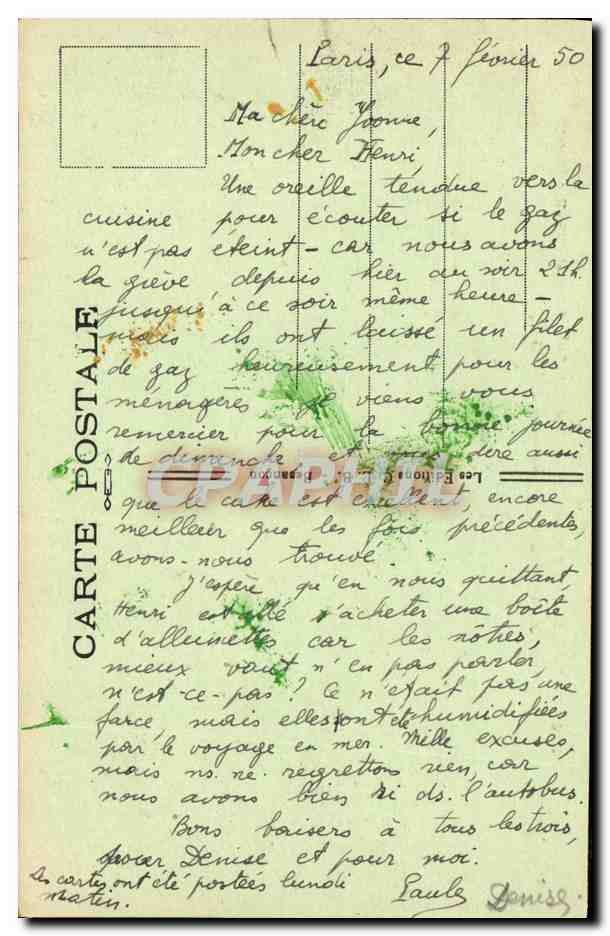 Paris, ce 7 février 50
Ma chère Yvonne,
Mon cher Henri,
Une oreille tendue vers la
cuisine pour écouter si le gaz
n'est pas éteint - car nous avons
la grève depuis hier au soir 21h.
jusqu'à ce soir même heure -
mais ils ont laissé un filet
de gaz heureusement pour les
ménagères je viens vous
remercier pour la bonne journée
de dimanche, et vous dire aussi
que le cake est excellent, encore
meilleur que les fois précédentes,
avons-nous trouvé.
J'espère qu'en nous quittant,
Henri est allé s'acheter une boîte
d'allumettes car les nôtres,
mieux vaut n'en pas parler,
n'est-ce-pas? Ce n'était pas une
farce, mais elles ont été humidifiées
par le voyage en mer. Mille excuses,
mais ns. ne regrettons rien, car
nous avons bien ri ds. l'autobus.
Bons baisers à tous les trois,
pour Denise et pour moi.
Paule Denise.
Les cartes ont été postées lundi
matin.
CARTE POSTALE
Les Editions C. L. B. Besançon
CPAPHIL